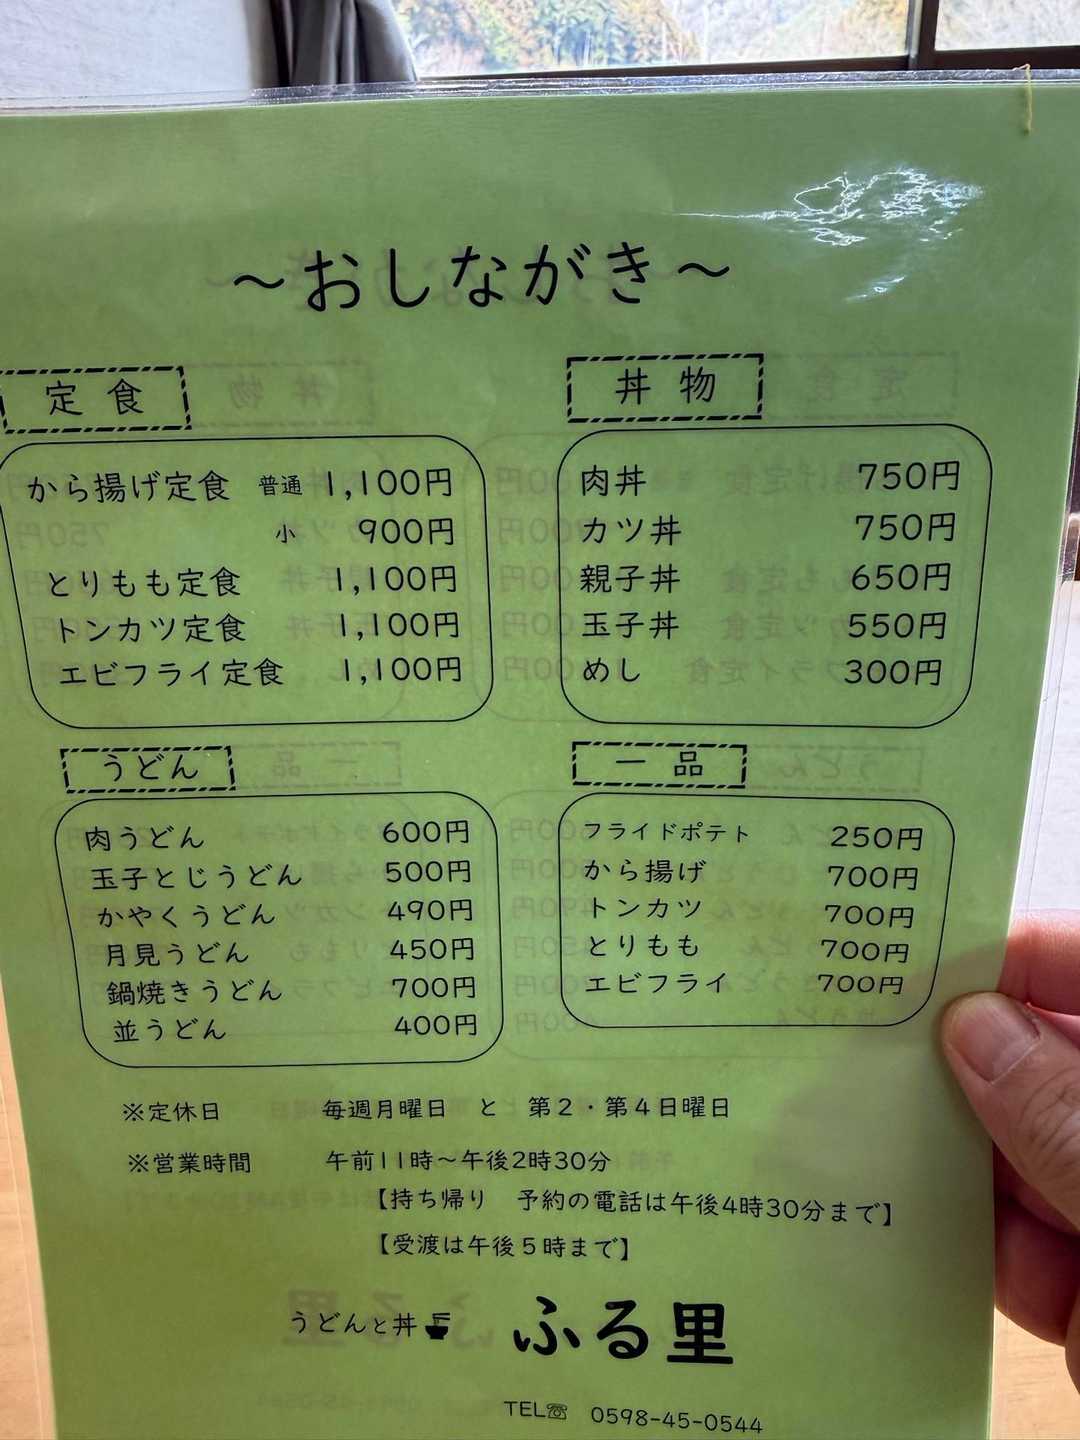 ～おしながき～
定食
から揚げ定食 普通 1,100円
小 900円
とりもも定食 1,100円
トンカツ定食 1,100円
エビフライ定食 1,100円
丼物
肉丼 750円
カツ丼 750円
親子丼 650円
玉子丼 550円
めし 300円
うどん
肉うどん 600円
玉子とじうどん 500円
かやくうどん 490円
月見うどん 450円
鍋焼きうどん 700円
並うどん 400円
一品
フライドポテト 250円
から揚げ 700円
トンカツ 700円
とりもも 700円
エビフライ 700円
※定休日 毎週月曜日 と 第2・第4日曜日
※営業時間 午前11時～午後2時30分
【持ち帰り 予約の電話は午後4時30分まで】
【受渡は午後5時まで】
うどんと丼 ふる里
TEL☏ 0598-45-0544